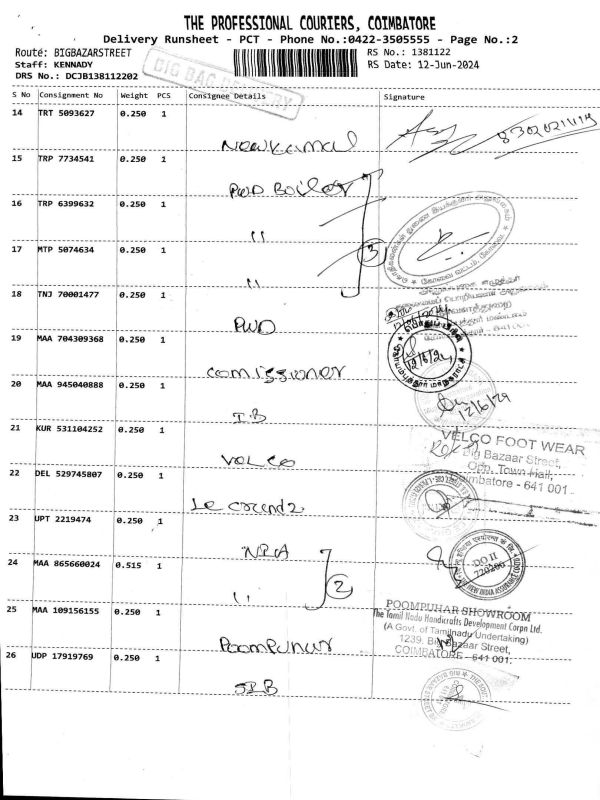 THE PROFESSIONAL COURIERS, COIMBATORE
Delivery Runsheet - PCT - Phone No.:0422-3505555 - Page No.:2
Route: BIGBAZARSTREET
RS No.: 1381122
Staff: KENNADY
RS Date: 12-Jun-2024
DRS No.: DCJB138112202
S No Consignment No Weight PCS Consignee Details Signature
14 TRT 5093627 0.250 1
Newkamal
15 TRP 7734541 0.250 1
PWD Boiler
16 TRP 6399632 0.250 1
"
17 MTP 5074634 0.250 1
"
3
18 TNJ 70001477 0.250 1
PWD
19 MAA 704309368 0.250 1
12/6/24
comissioner
20 MAA 945040888 0.250 1
I.B
12/6/24
21 KUR 531104252 0.250 1
VELCO FOOT WEAR
Big Bazaar Street,
Opp. Town Hall,
Coimbatore - 641 001.
Velco
22 DEL 529745807 0.250 1
23 UPT 2219474 0.250 1
NIA
24 MAA 865660024 0.515 1
"
2
DO II
720206
THE NEW INDIA ASSURANCE
25 MAA 109156155 0.250 1
POOMPUHAR SHOWROOM
The Tamil Nadu Handicrafts Development Corpn Ltd.
(A Govt. of Tamilnadu Undertaking)
1239, Big Bazaar Street,
COIMBATORE - 641 001.
Poompuhur
26 UDP 17919769 0.250 1